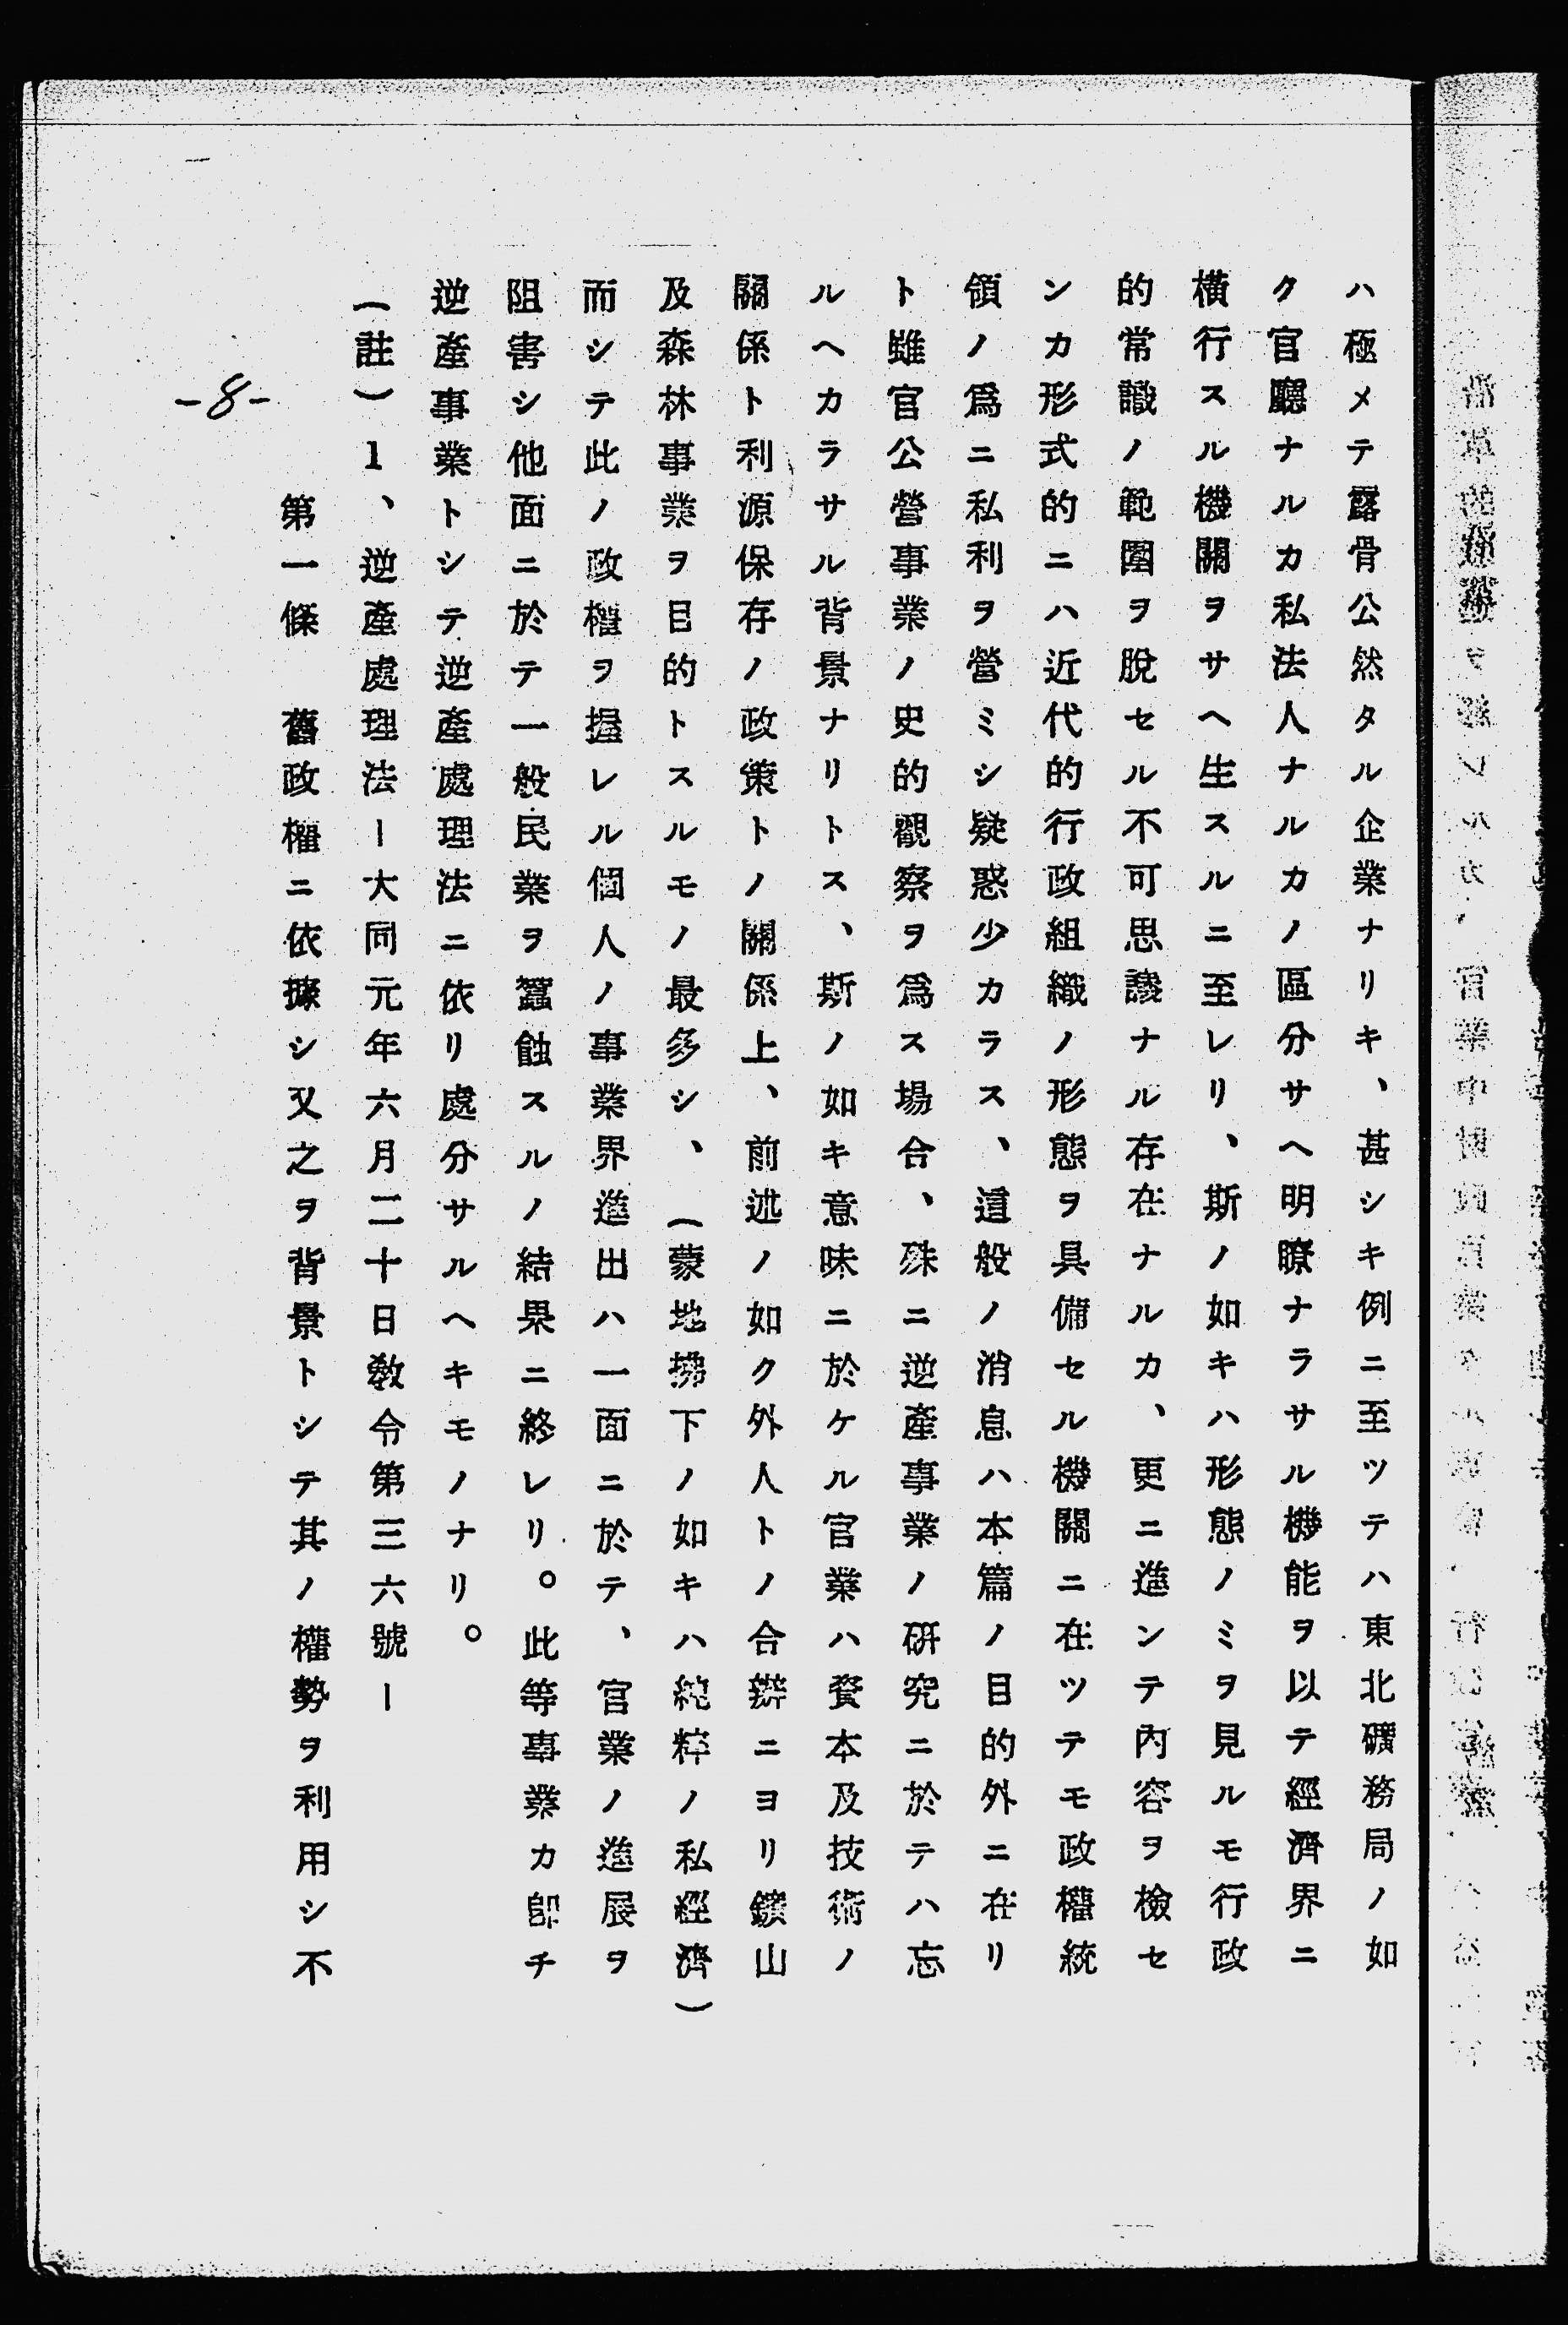 ハ極メテ露骨公然タル企業ナリキ、甚シキ例ニ至ツテハ東北礦務局ノ如
ク官廳ナルカ私法人ナルカノ區分サヘ明瞭ナラサル機能ヲ以テ經濟界ニ
横行スル機關ヲサヘ生スルニ至レリ、斯ノ如キハ形態ノミヲ見ルモ行政
的常識ノ範圍ヲ脫セル不可思議ナル存在ナルカ、更ニ進ンテ內容ヲ檢セ
ンカ形式的ニハ近代的行政組織ノ形態ヲ具備セル機關ニ在ツテモ政權統
領ノ爲ニ私利ヲ營ミシ疑惑少カラス、這般ノ消息ハ本篇ノ目的外ニ在リ
ト雖官公營事業ノ史的觀察ヲ爲ス場合、殊ニ逆產事業ノ硏究ニ於テハ忘
ルヘカラサル背景ナリトス、斯ノ如キ意味ニ於ケル官業ハ資本及技術ノ
關係ト利源保存ノ政策トノ關係上、前述ノ如ク外人トノ合辦ニヨリ鑛山
及森林事業ヲ目的トスルモノ最多シ、(蒙地拂下ノ如キハ純粹ノ私經濟)
而シテ此ノ政權ヲ握レル個人ノ事業界進出ハ一面ニ於テ、官業ノ進展ヲ
阻害シ他面ニ於テ一般民業ヲ蠶蝕スルノ結果ニ終レリ。此等事業カ卽チ
逆產事業トシテ逆產處理法ニ依リ處分サルヘキモノナリ。
(註)1、逆產處理法ー大同元年六月二十日敎令第三六號ー
第一條　舊政權ニ依據シ又之ヲ背景トシテ其ノ權勢ヲ利用シ不
-8-